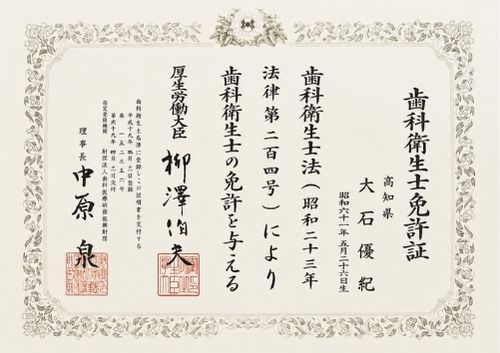 歯科衛生士免許証
高知県
大石優紀
昭和六十一年五月二十六日生
歯科衛生士法(昭和二十三年
法律第二百四号)により
歯科衛生士の免許を与える
厚生労働大臣 柳澤伯夫
歯科衛生士名簿に登録しこの証明書を交付する
指定登録機関 財団法人歯科医療研修振興財団
理事長 中原泉